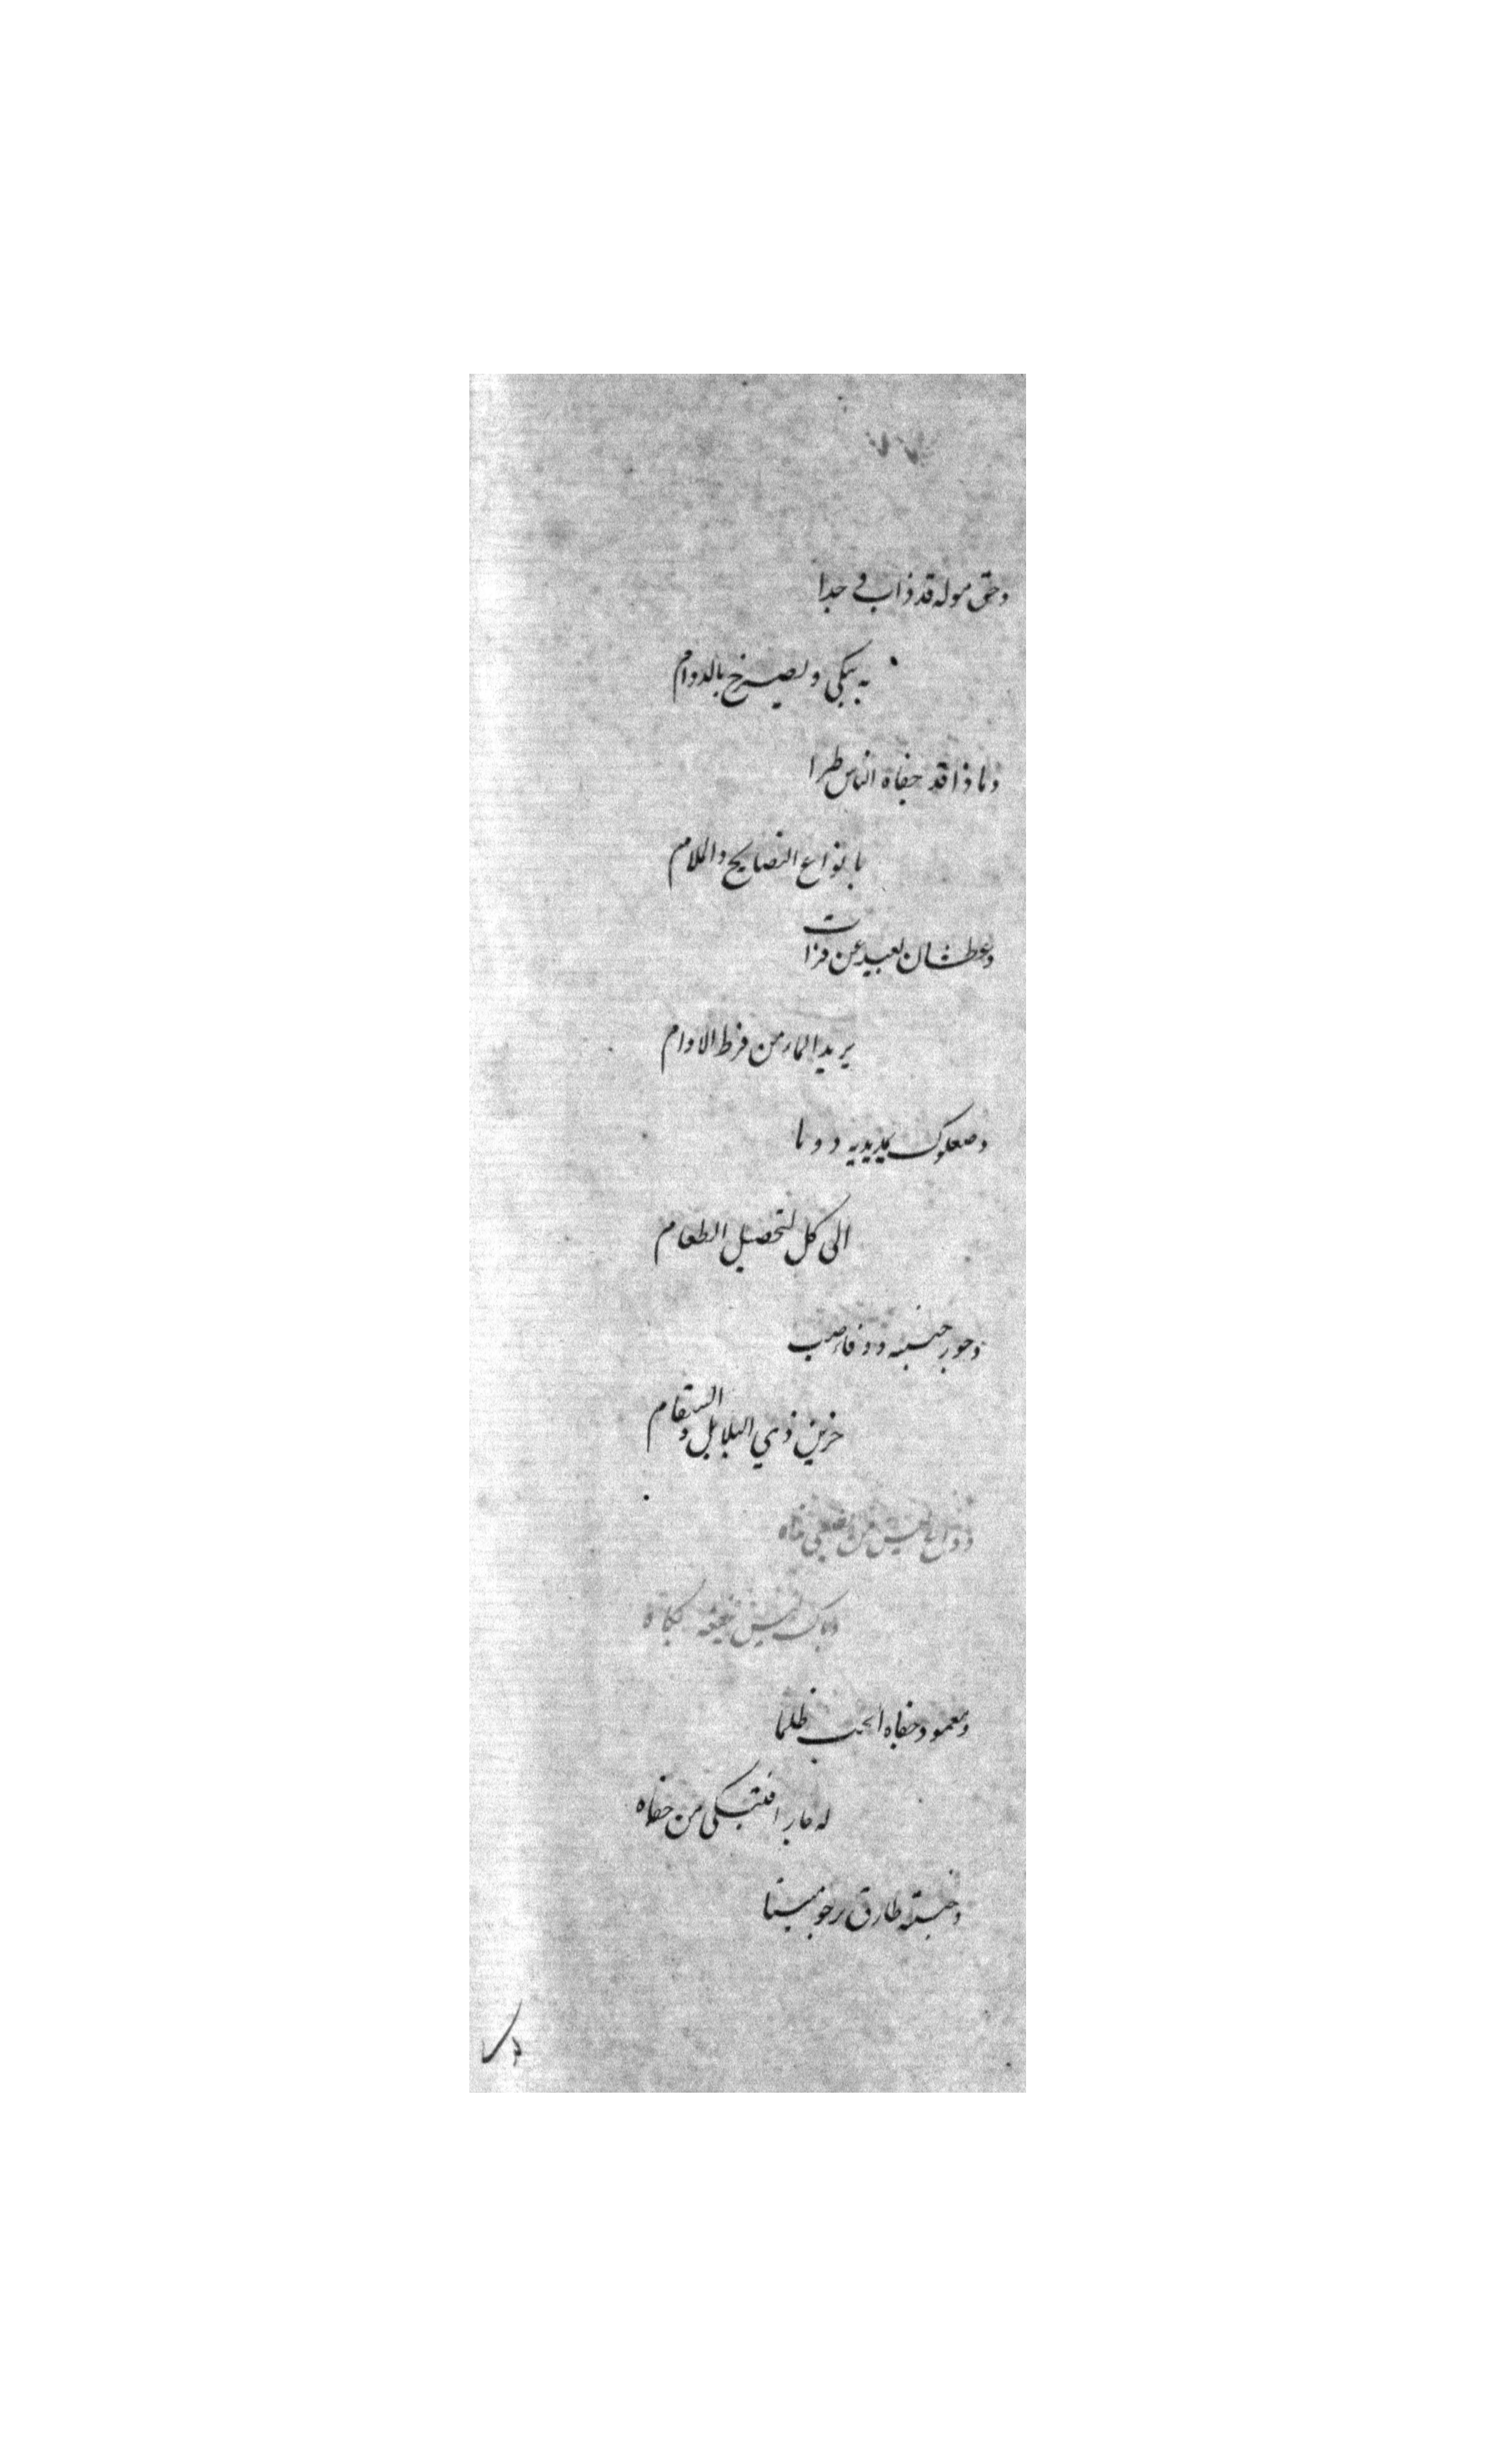 وحق موله قد ذاب وجدا
به يبكي ويصرخ بالدوام
وماذا قد جفاه الناس طرا
بانواع النصايح والملام
وعطشان بعيد عن فرات
يريد الماء من فرط الاوام
وصعلوك يمد يديه دوما
الى كل لتحصيل الطعام
وجور حبيبه ووفاء صب
حزين ذي البلابل والسقام
وباك ليس
ومعمود جفاه الحب ظلما
له عار افتبكي من جفاه
وخيبة طارق يرجو مبيتا